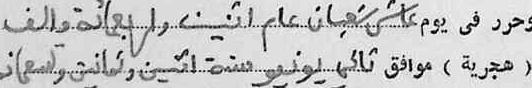 وحرر فى يوم عاشر شعبان عام اثنين واربعمائة والف
( هجرية ) موافق ثالث يونيو سنة اثنين وثمانين وتسعمائة